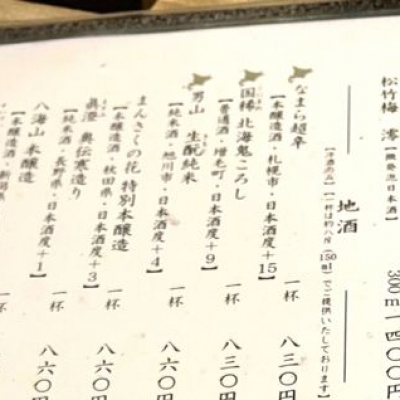 松竹梅 澪【微発泡日本酒】 300m 一四〇〇円
地酒
【全酒のみ】【一杯は約八斥(150ml)でご提供いたしております】
なまら超辛 一杯 八三〇円
【本醸造酒・札幌市・日本酒度+15】
国稀 北海鬼ころし 一杯 八三〇円
【普通酒・増毛町・日本酒度+9】
男山 生酛純米 一杯 八六〇円
【純米酒・旭川市・日本酒度+4】
まんさくの花 特別本醸造 一杯 八六〇円
【本醸造酒・秋田県・日本酒度+3】
真澄 奥伝寒造り 一杯 八六〇円
【純米酒・長野県・日本酒度+1】
八海山 本醸造 一杯 八六〇円
【本醸造酒・新潟県